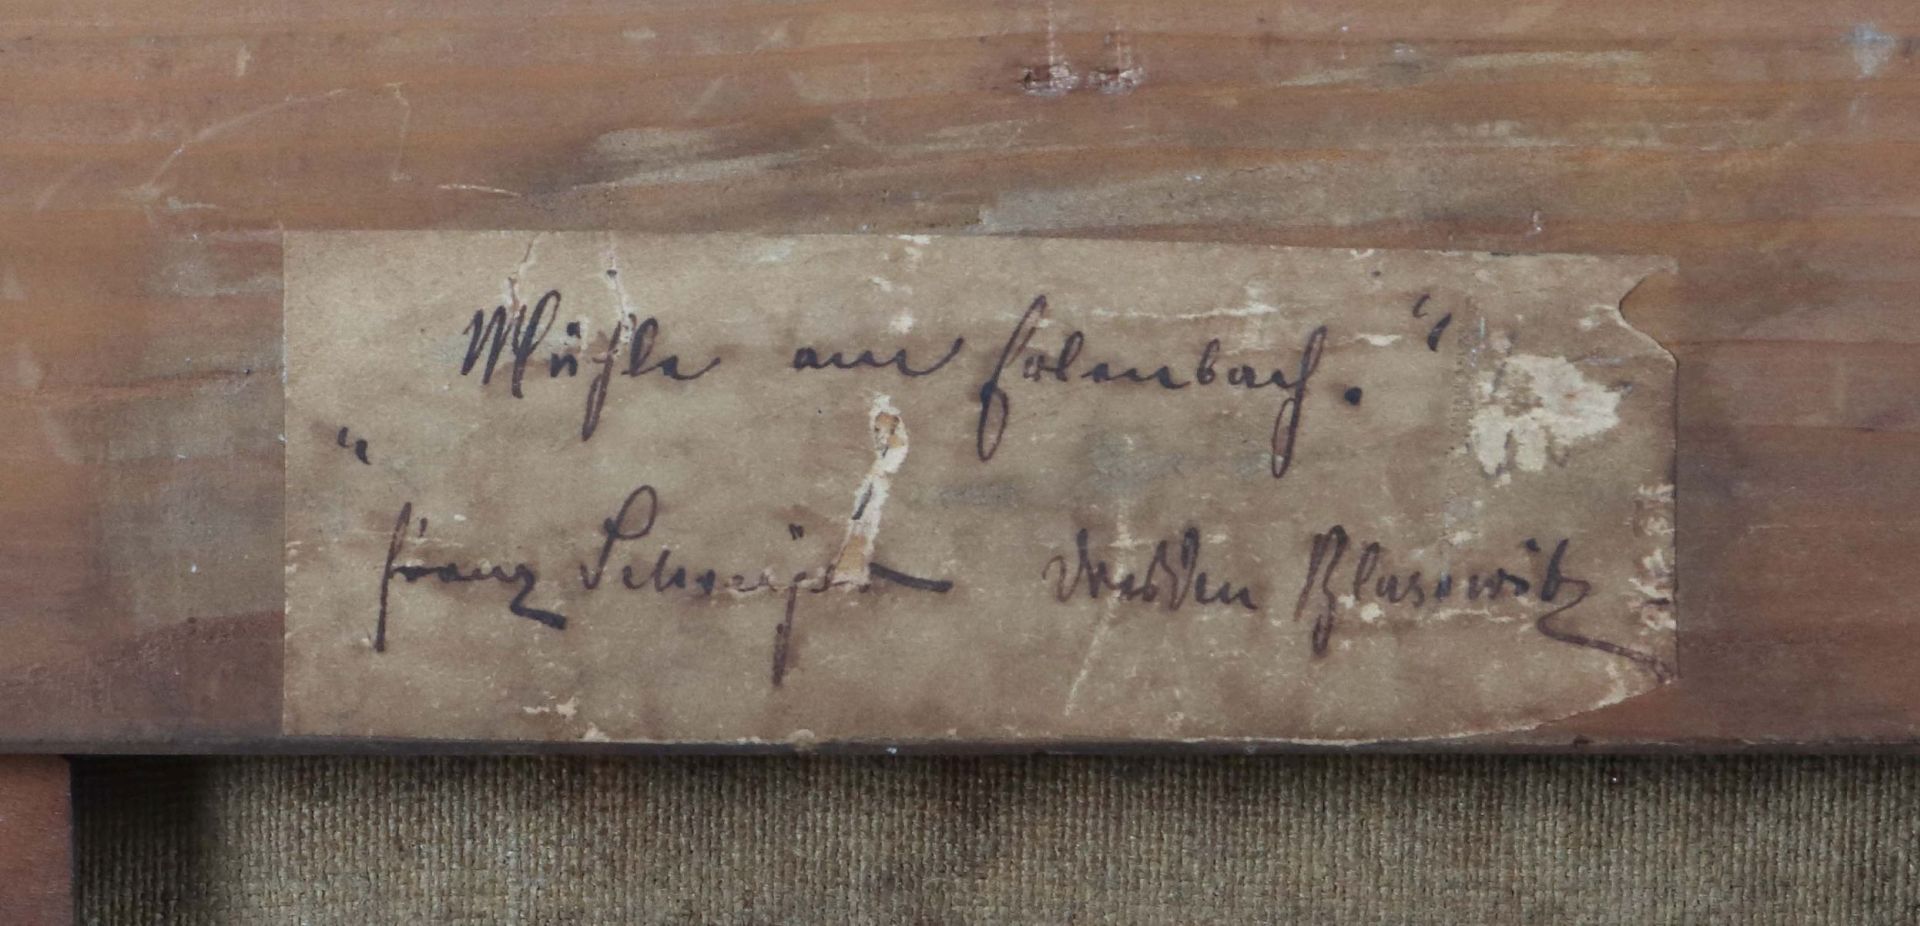 „Mühle am Erlenbach.“
Franz Schreÿer Dresden Blasewitz